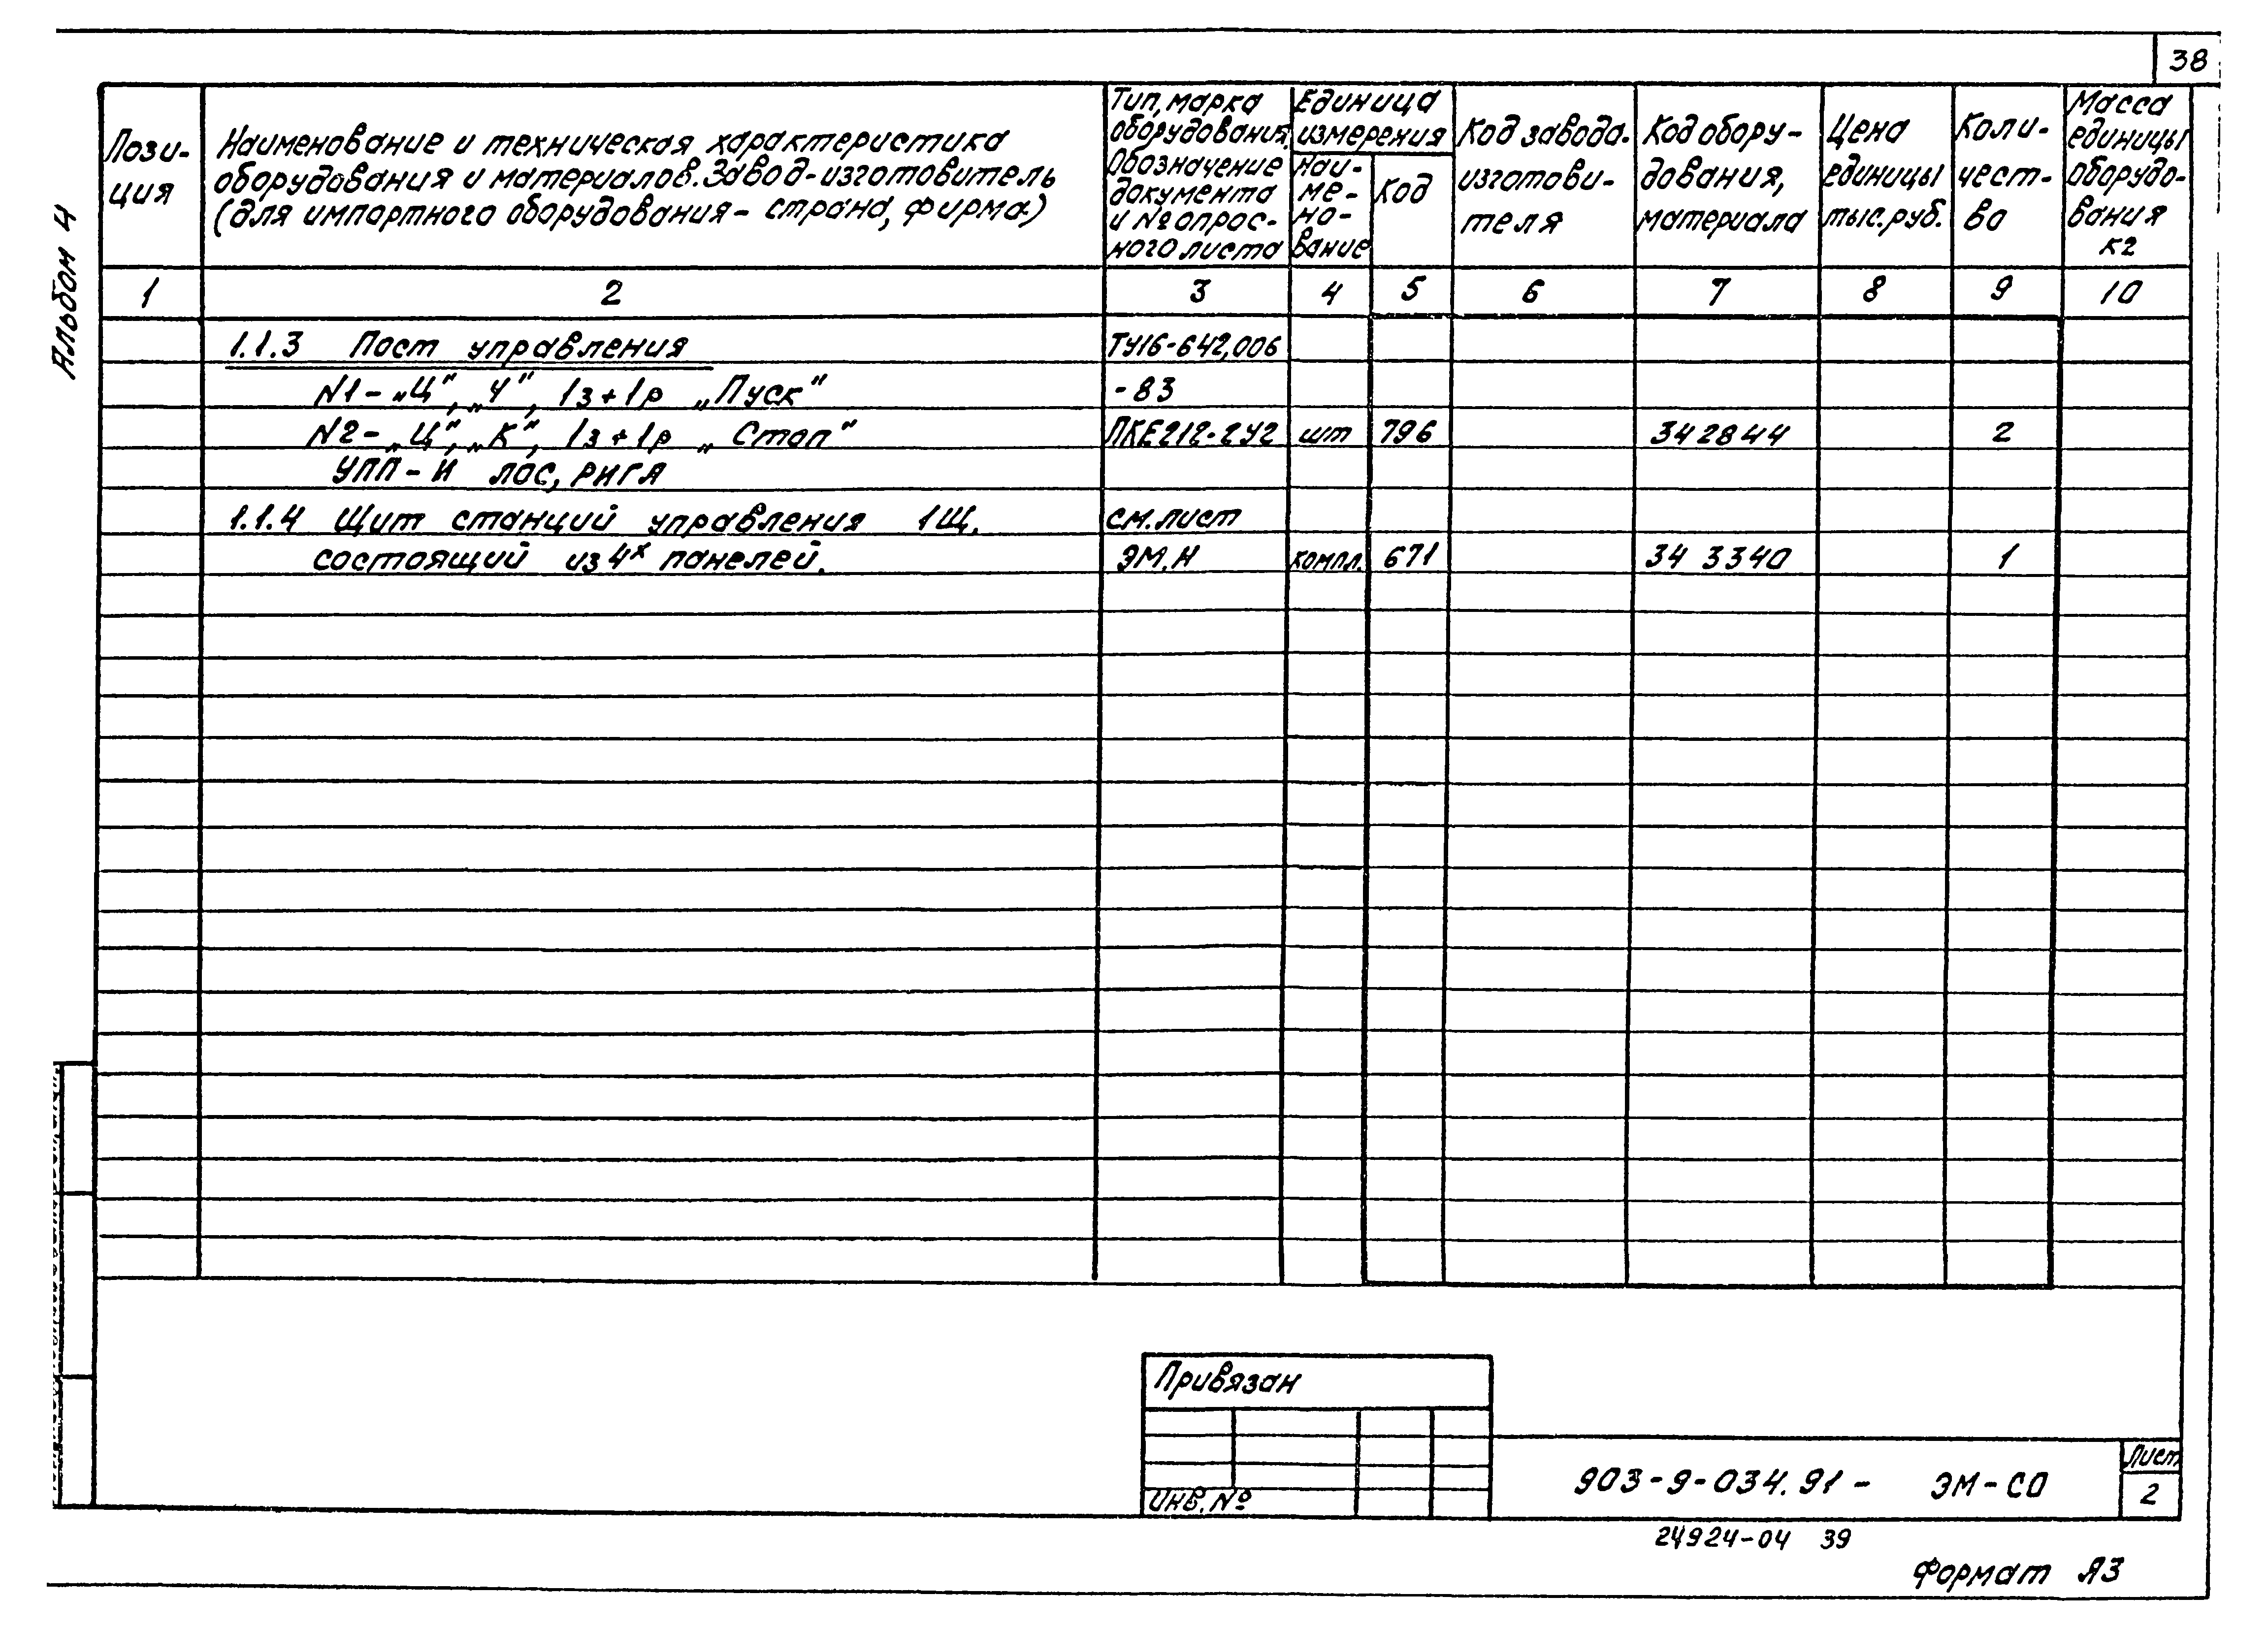 38
Альбом 4
Пози-
ция
Наименование и техническая характеристика
оборудования и материалов. Завод-изготовитель
(для импортного оборудования - страна, фирма)
Тип, марка
оборудования.
Обозначение
документа
и № опрос-
ного листа
Единица
измерения
Наи-
ме-
но-
вание
Код
Код завода-
изготови-
теля
Код обору-
дования,
материала
Цена
единицы
тыс.руб.
Коли-
чест-
во
Масса
единицы
оборудо-
вания
кг
1 2 3 4 5 6 7 8 9 10
1.1.3 Пост управления ТУ16-642,006
N1-„Ц“,„Ч“, 1з+1р „Пуск“ -83
N2-„Ц“,„К“, 1з+1р „Стоп“ ПКЕ212-2У2 шт 796 342844 2
УПП-И ЛОС, РИГА
1.1.4 Щит станций управления 1Щ. см. лист
состоящий из 4х панелей. ЭМ.Н компл. 671 34 3340 1
Привязан
Инв. №
903-9-034.91- ЭМ-СО
Лист
2
24924-04 39
Формат А3